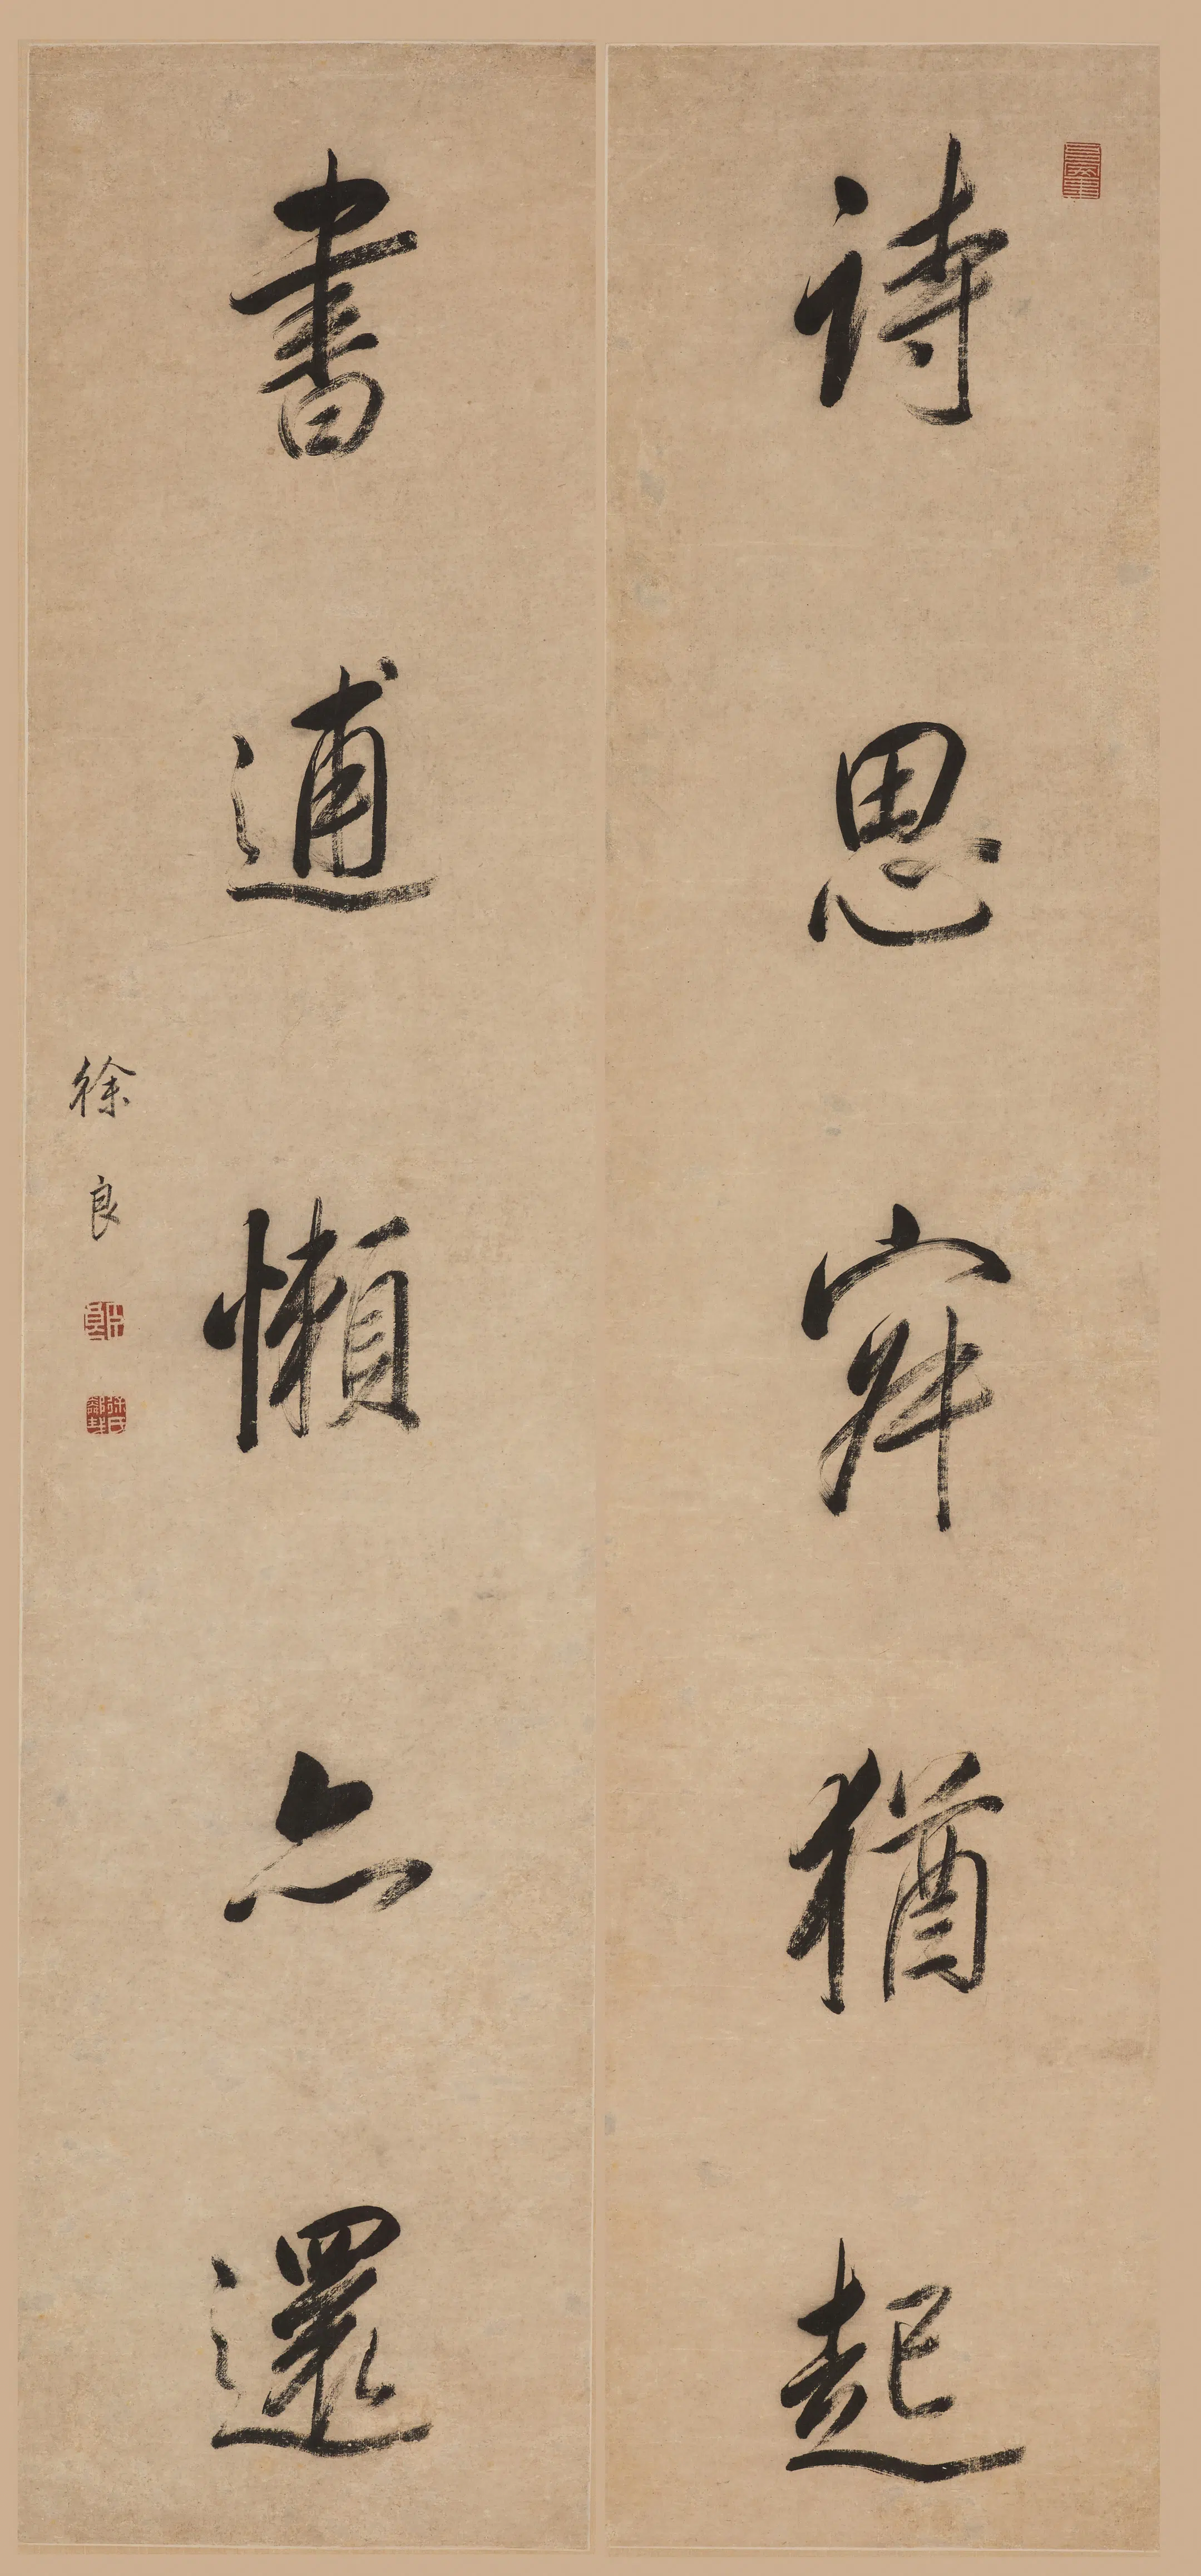 詩思寐猶起
書逋懶亦還
徐良